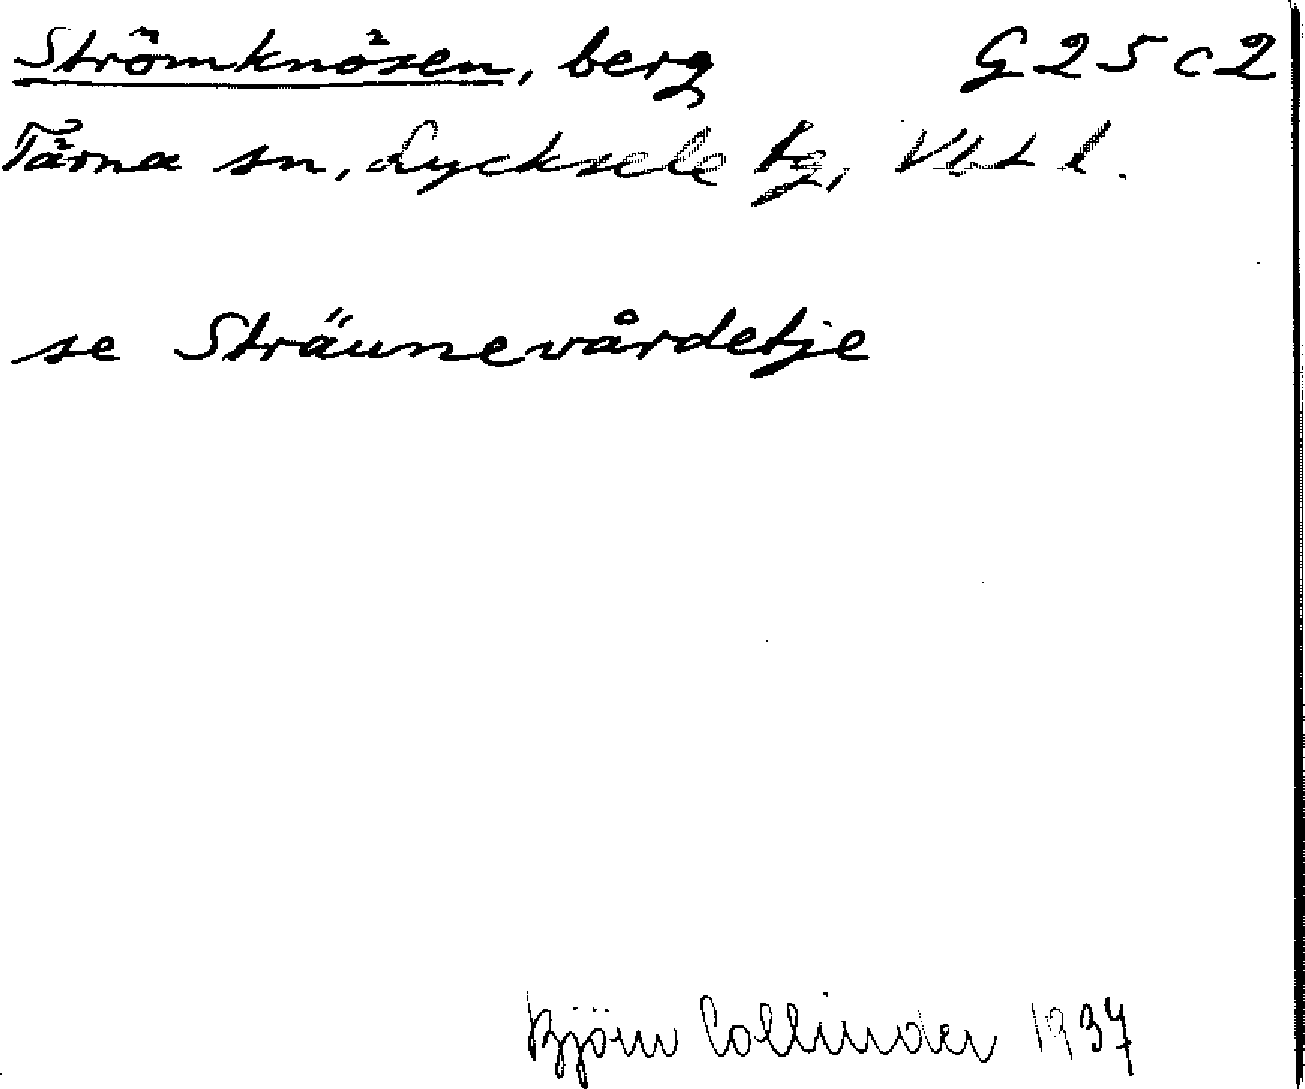 Strömknösen, berg G25c2
Tärna sn, Lycksele tg, Vbt l.
se Sträunevårdetje
Björn Collinder 1937